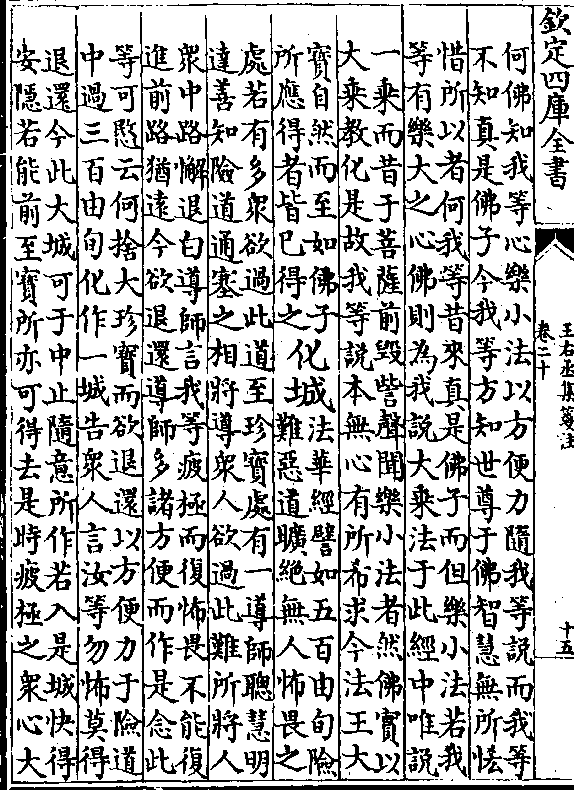 欽定四庫全書
王右丞集箋注
卷二十
十五
何佛知我等心樂小法以方便力隨我等說而我等
不知真是佛子今我等方知世尊于佛智慧無所恡
惜所以者何我等昔來真是佛子而但樂小法若我
等有樂大之心佛則為我說大乘法于此經中唯說
一乘而昔于菩薩前毀訾聲聞樂小法者然佛實以
大乘教化是故我等說本無心有所希求今法王大
寶自然而至如佛子
所應得者皆已得之
化城
法華經譬如五百由旬險
難惡道曠絕無人怖畏之
處若有多衆欲過此道至珍寶處有一導師聰慧明
達善知險道通塞之相將導衆人欲過此難所將人
衆中路懈退白導師言我等疲極而復怖畏不能復
進前路猶遠今欲退還導師多諸方便而作是念此
等可愍云何捨大珍寶而欲退還以方便力于險道
中過三百由旬化作一城告衆人言汝等勿怖莫得
退還今此大城可于中止隨意所作若入是城快得
安隱若能前至寶所亦可得去是時疲極之衆心大